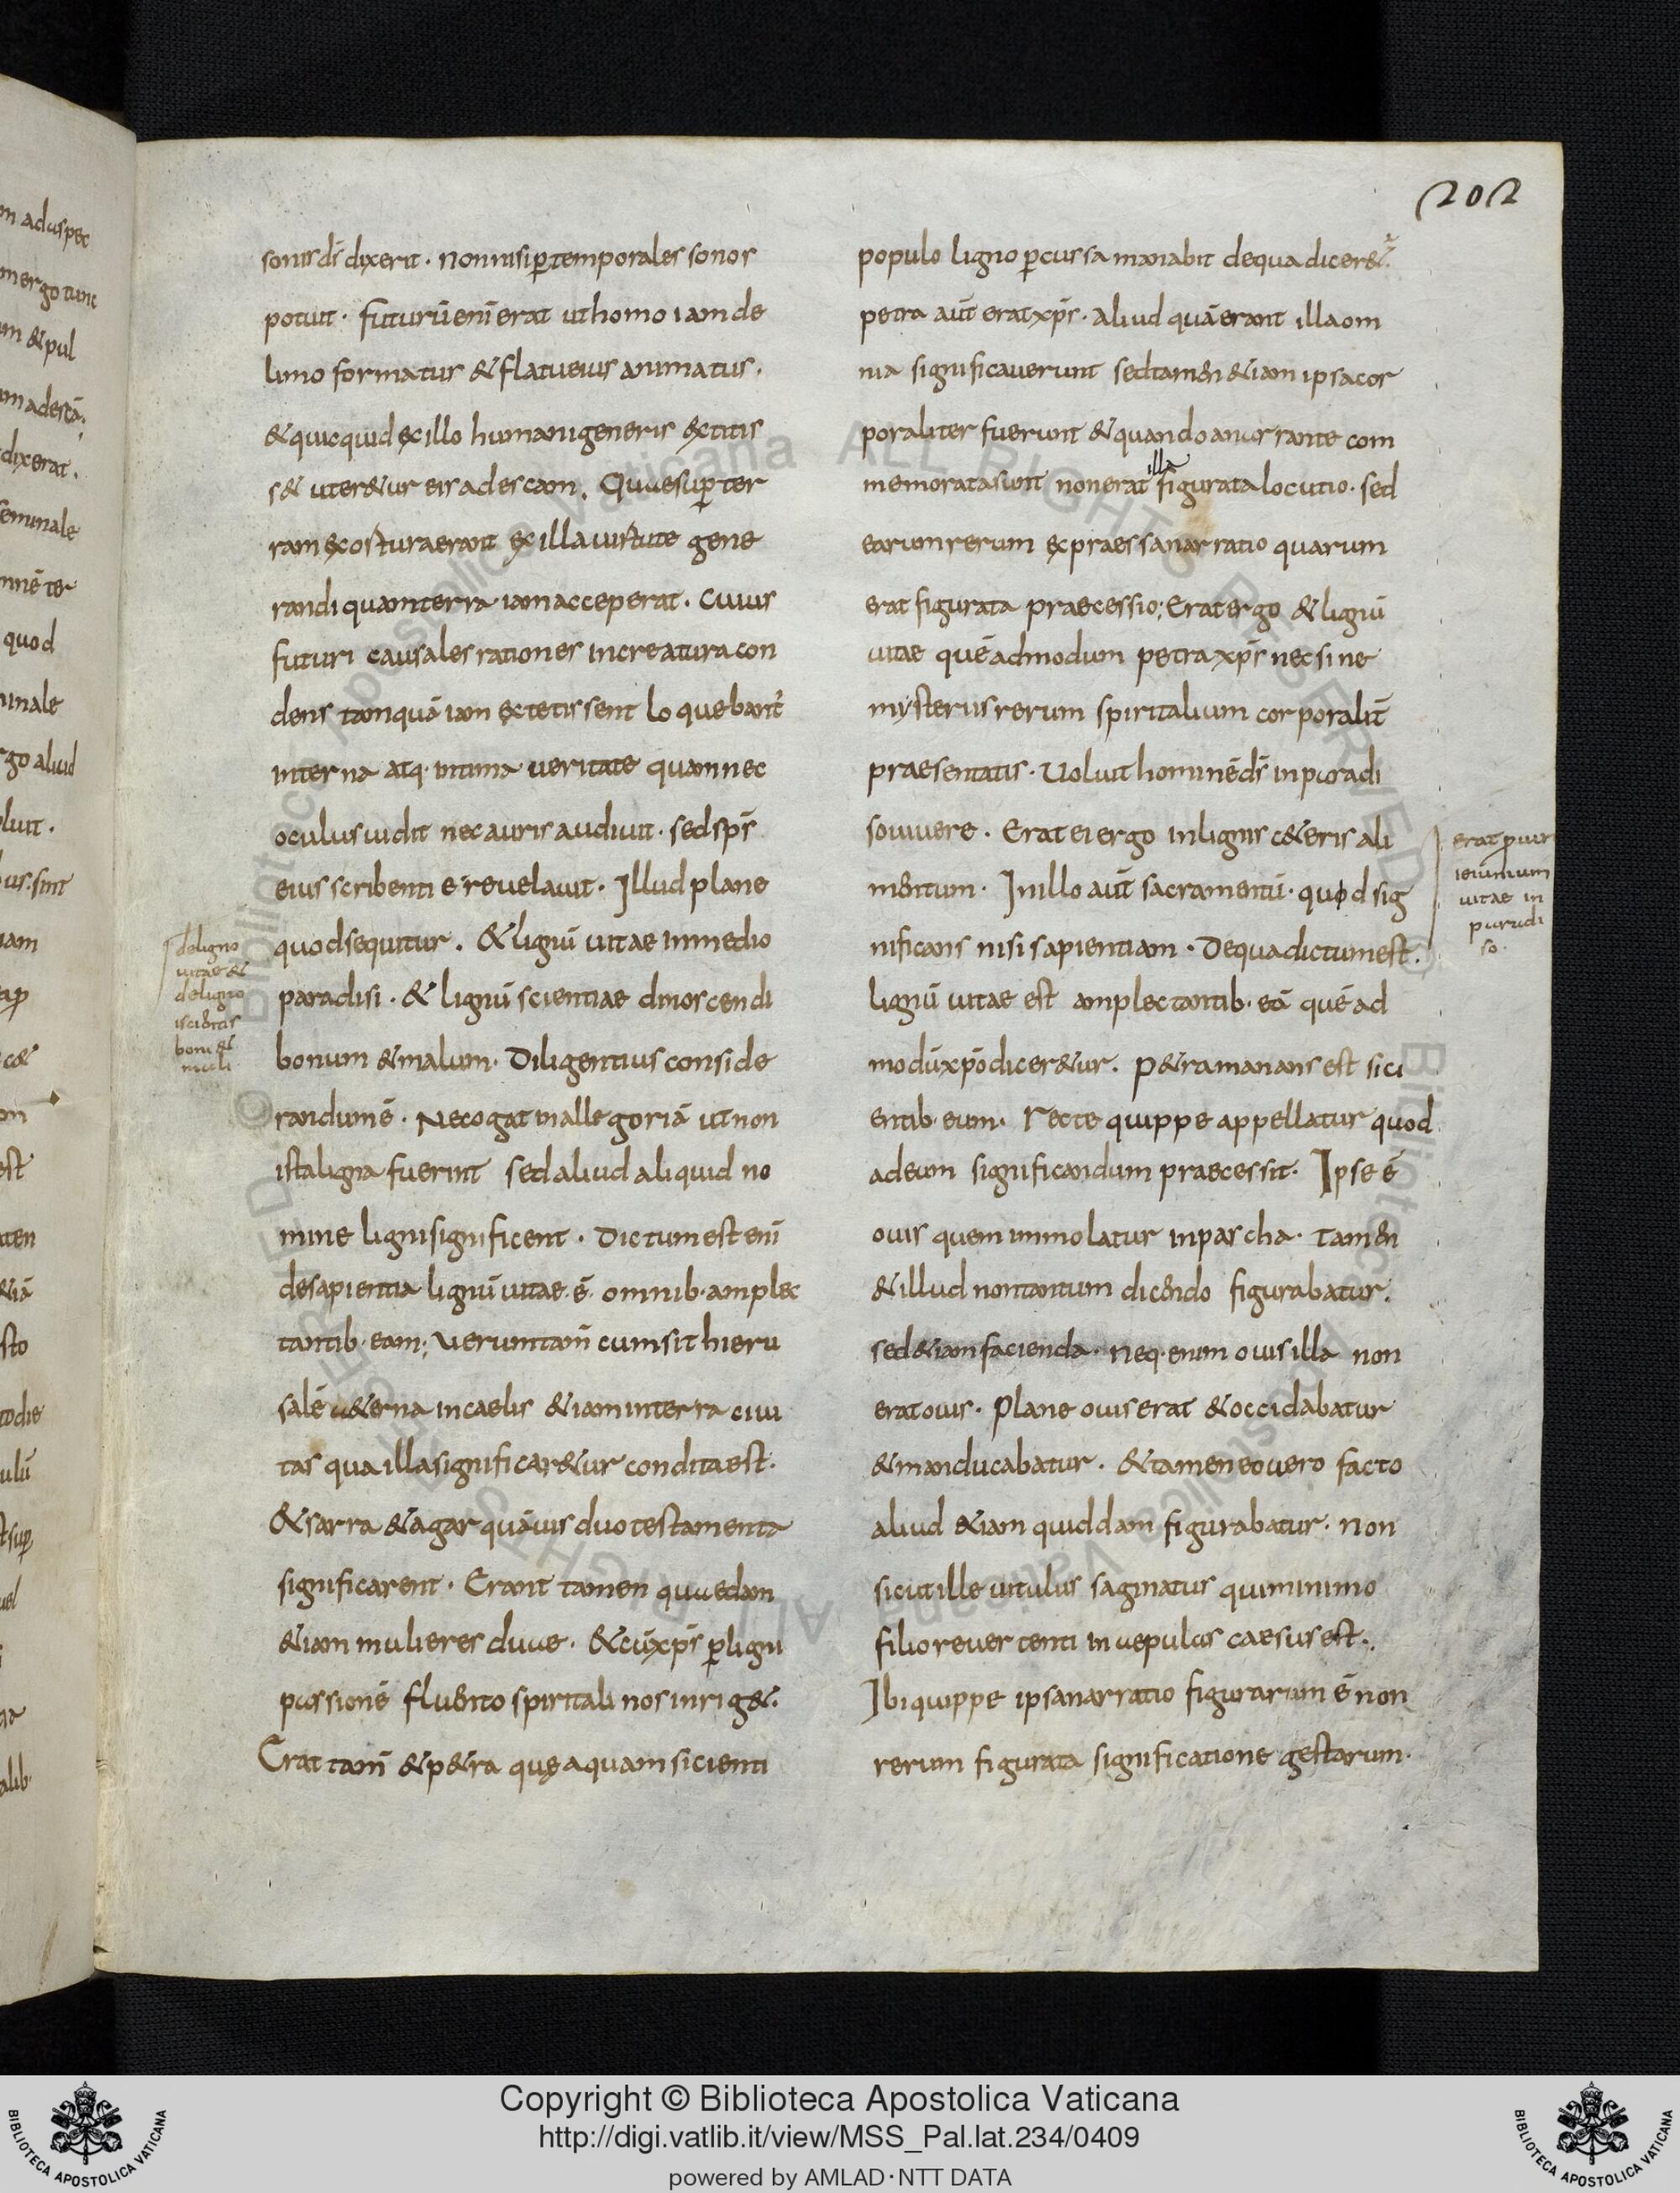 202
sonis dś dixerit · non nisi p̱ temporales sonos
potuit · futurū enī erat ut homo iam de
limo formatus & flatu eius animatus ·
& quicquid ex illo humani generis extitis
s& uter&ur eis ad escam. Quae sup̱ ter
ram exosturaerant ex illa uirtute gene
randi quam terra iam acceperat · Cuius
futuri causales rationes in creatura con
dens tamquā iam extetissent loquebant᷑
interna atq· intima ueritate quam nec
oculus uidit nec auris audiuit · sed sps̄
eius scribenti e reuelauit · Illud plane
quod sequitur . & lignū uitae in medio
paradisi . & lignū scientiae dinoscendi
bonum & malum · Diligentius conside
randum ē · Ne cogat in allegoriā ut non
ista ligna fuerint sed aliud aliquid no
mine ligni significent · Dictum est enī
de sapientia lignū uitae ē omnib· amplec
tantib· eam; Veruntam̄ cum sit hieru
salē aeterna in caelis &iam in terra ciui
tas qua illa significar&ur condita est ·
& sarra & agar quāuis duo testamenta
significarent · Erant tamen quaedam
&iam mulieres duae · & cū xps̄ p̱ ligni
passionē fluento spiritali nos inrig& ·
Erat tam̄ & p&ra quę aquam sicienti
deligno
uitae &
deligno
iscientias
boni &
mali
populo ligno p̱cussa manabit de qua dicer&᷑
petra aut̄ erat xps̄ · aliud quā erant illa om
nia significauerunt sed tamen &iam ipsa cor
poraliter fuerunt & quando a narrante com
memorata sunt non erat illa figurata locutio · sed
earum rerum expraessa narratio quarum
erat figurata praecessio; Erat ergo & lignū
uitae quē admodum petra xps̄ nec sine
mysteriis rerum spiritalium corporalit̄
praesentatis · Uoluit hominē dś in paradi
so uiuere · Erat ei ergo in lignis c&eris ali
mentum · In illo aut̄ sacramentū · quod sig
nificans nisi sapientiam · De qua dictum est .
lignū uitae est amplectantib· eā quē ad
modū xpō dicer&ur . P&ra manans est sici
entib· eum · recte quippe appellatur quod
ad eum significandum praecessit · Ipse ē
ouis quem immolatur in pascha · tamen
& illud non tantum dicendo figurabatur .
sed &iam facienda · neq· enim ouis illa non
erat ouis · Plane ouis erat & occidabatur
& manducabatur . & tamen eo uero facto
aliud &iam quiddam figurabatur · non
sicut ille uitulus saginatus qui minimo
filio reuertenti in aepulas caesus est .
Ibi quippe ipsa narratio figurarum ē non
rerum figurata significatione gestarum ·
erat p̱ uir
uitae in
paradi
so ·
Copyright © Biblioteca Apostolica Vaticana
http://digi.vatlib.it/view/MSS_Pal.lat.234/0409
powered by AMLAD·NTT DATA
BIBLIOTECA APOSTOLICA VATICANA
BIBLIOTECA APOSTOLICA VATICANA